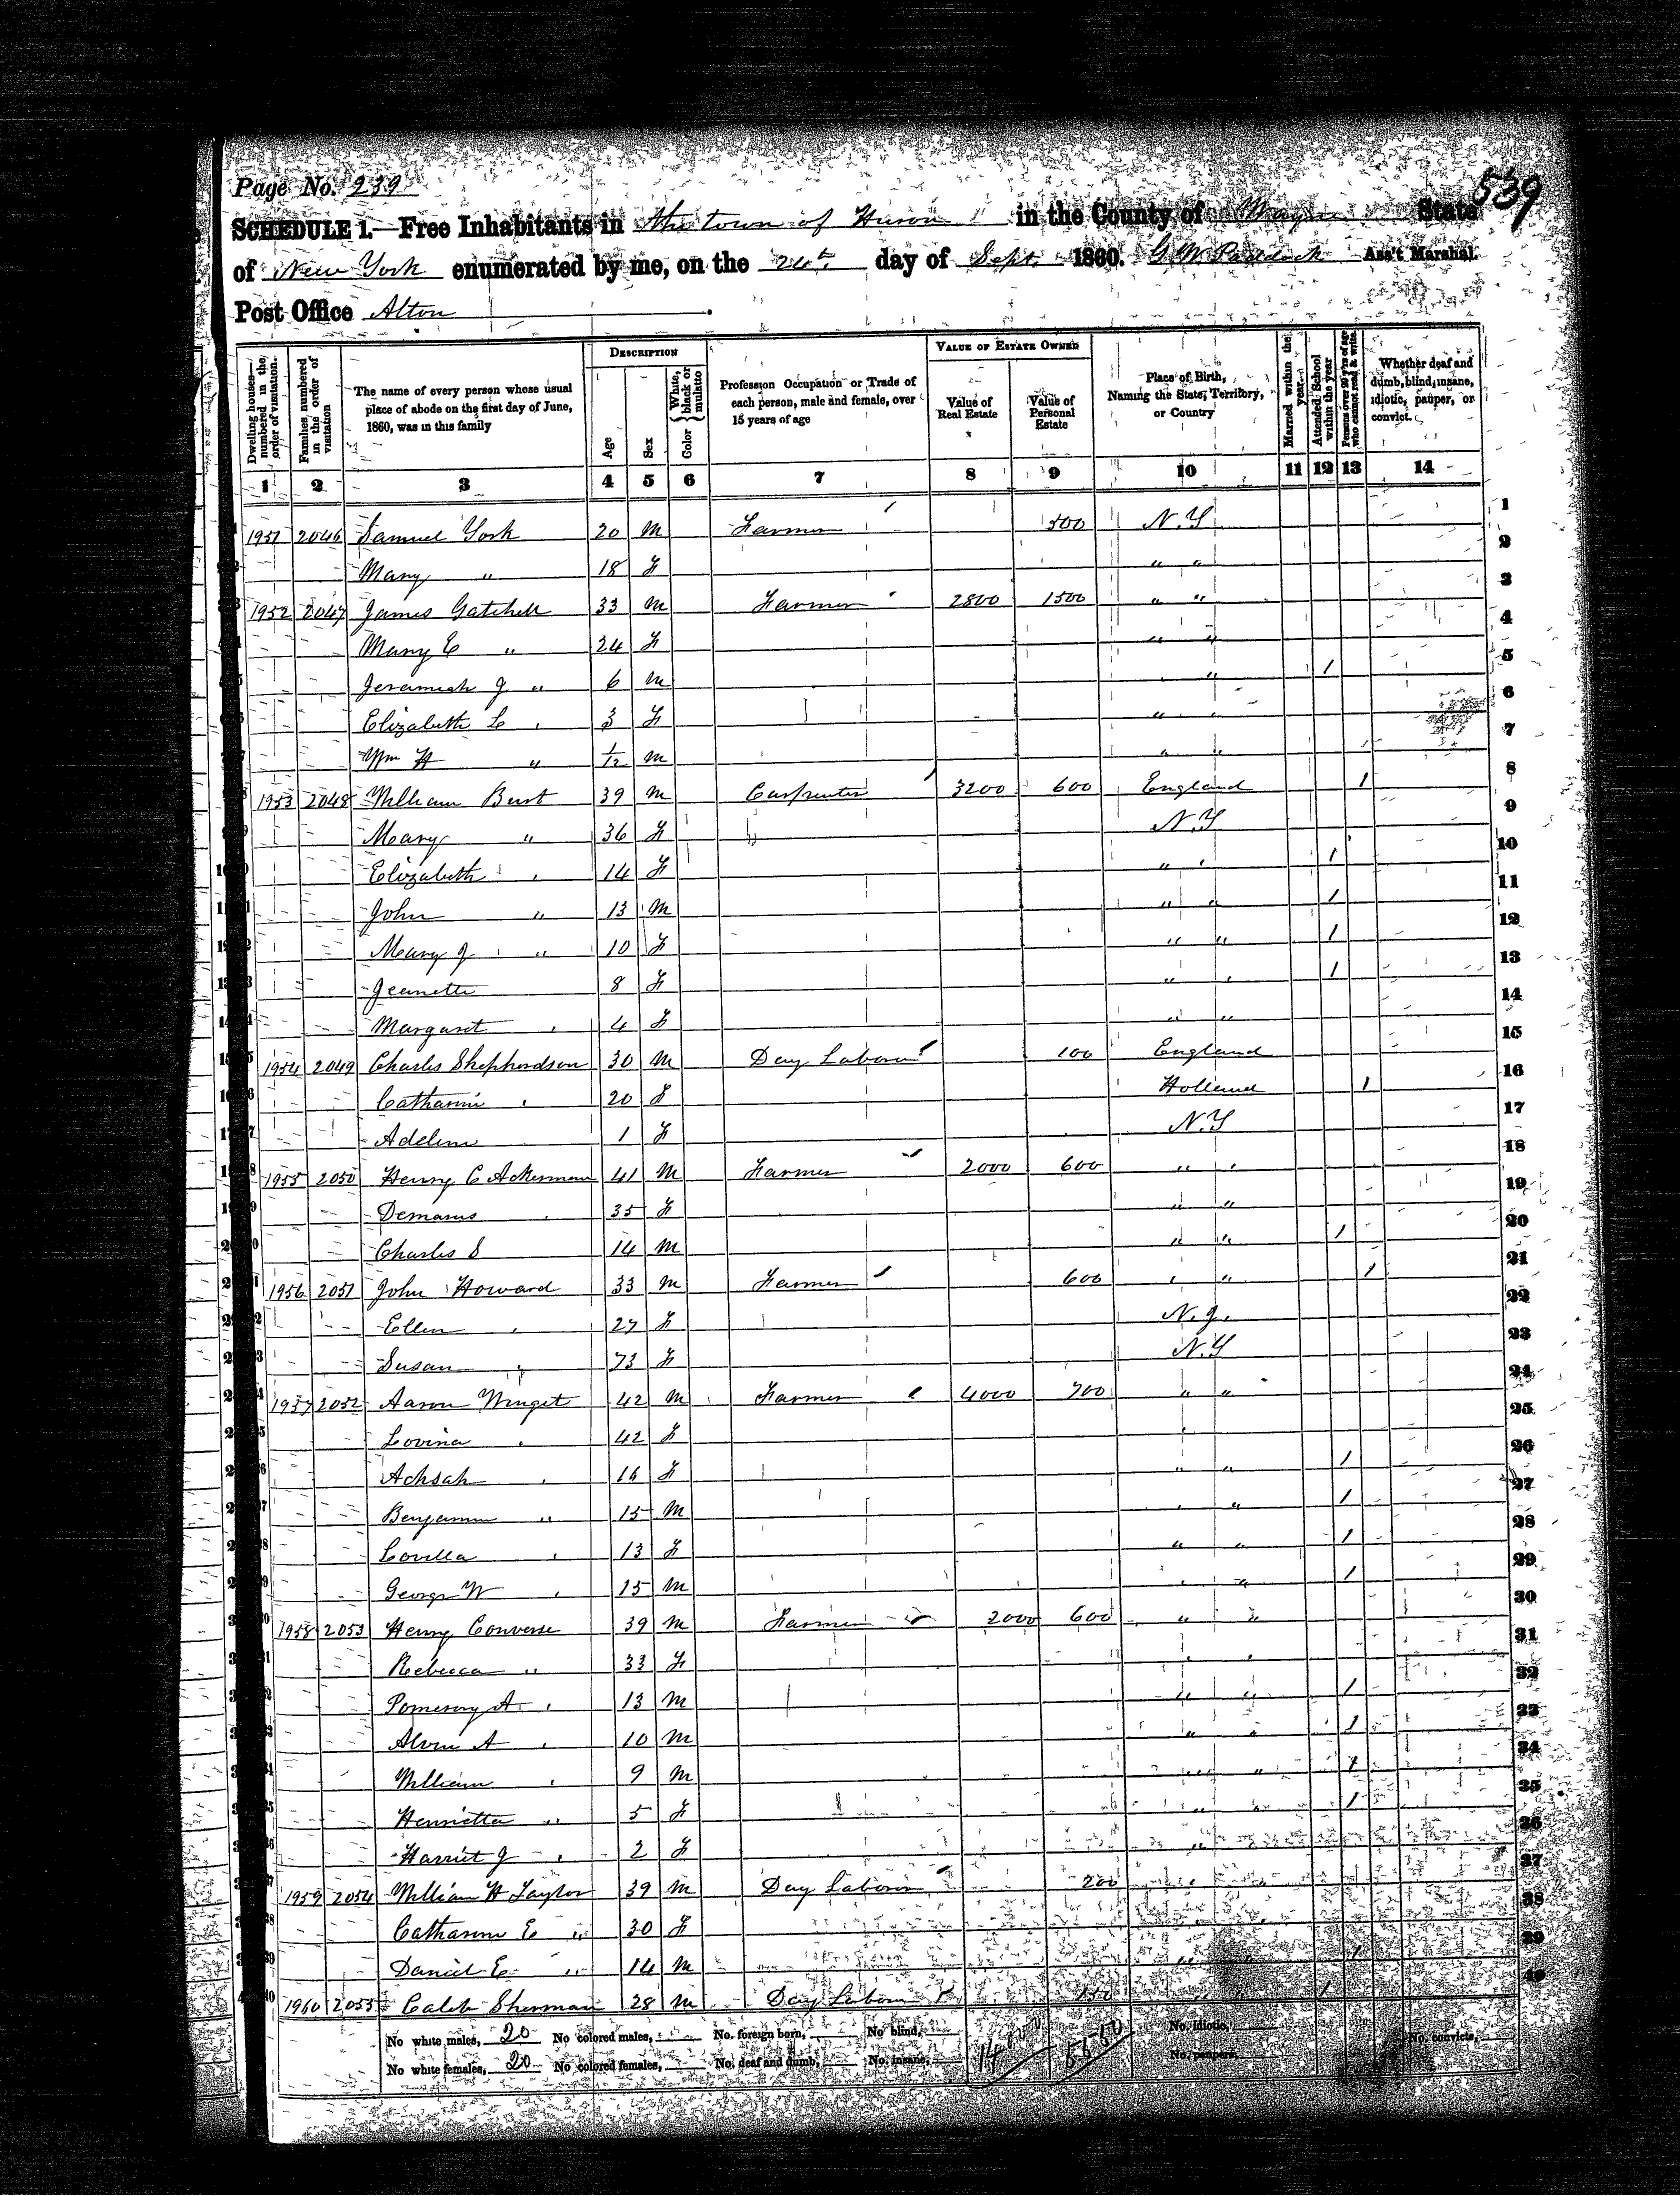 Page No. 239
539
SCHEDULE 1.—Free Inhabitants in the town of Huron in the County of Wayne State
of New York enumerated by me, on the 24th day of Sept. 1860. G W Paddock Ass't Marshal.
Post Office Alton
Dwelling houses—numbered in the order of visitation.
Families numbered in the order of visitation
The name of every person whose usual place of abode on the first day of June, 1860, was in this family
DESCRIPTION
Age
Sex
Color { White, black or mulatto
Profession Occupation or Trade of each person, male and female, over 15 years of age
VALUE OF ESTATE OWNED
Value of Real Estate
Value of Personal Estate
Place of Birth, Naming the State, Territory, or Country
Married within the year
Attended School within the year
Persons over 20 y'rs of age who cannot read & write
Whether deaf and dumb, blind, insane, idiotic, pauper, or convict.
1 2 3 4 5 6 7 8 9 10 11 12 13 14
1951 2046 Samuel York 20 M Farmer 500 N.Y 1
Mary " 18 F " " 2
1952 2047 James Gatchell 33 M Farmer 2800 1500 " " 3
Mary E " 24 F " " 4
Jeramiah J " 6 M " 1 5
Elizabeth L " F " " 6
Wm H " 1/12 M " " 7
1953 2048 William Burt 39 M Carpenter 3200 600 England 1 8
Meary " 36 F N.Y 9
Elizabeth " 14 F " " 1 10
John " 13 M " " 1 11
Meary J " 10 F " " 1 12
Jeanette 8 F " " 1 13
Margaret " 4 F " " 14
1954 2049 Charles Shephordson 30 M Day Laborer 100 England 15
Catharine " 20 F Holland 1 16
Adeline 1 F N.Y 17
1955 2050 Henry C Ackerman 41 M Farmer 2000 600 " " 18
Demarus " 35 F " " 19
Charles S 14 M " " 1 20
1956 2051 John Howard 33 M Farmer 600 " " 1 21
Ellen " 27 F N.J. 22
Susan " 73 F N.Y 23
1957 2052 Aaron Winget 42 M Farmer 4000 700 " " 24
Lovina " 42 F " 25
Achsah " 16 F " " 1 26
Benjamin " 15 M " " 1 27
Lovilla " 13 F " " 1 28
George W " 15 M " " 1 29
1958 2053 Henry Converse 39 M Farmer 2000 600 " " 30
Rebecca " 33 F " " 31
Pomeroy A " 13 M " " 1 32
Alvin A " 10 M " " 1 33
William " 9 M " " 1 34
Henrietta " 5 F " " 1 35
Harriet J " 2 F " 36
1959 2054 William H Taylor 39 M Day Laborer 200 " " 37
Catharine E " 30 F " 38
Daniel E " 14 M " 1 39
1960 2055 Caleb Sherman 28 M Day Laborer " " 1 40
No white males, 20 No colored males, No. foreign born, No blind, 14000 5550 No. idiotic, No. convicts,
No white females, 20 No colored females, No. deaf and dumb, No. insane, No. paupers,